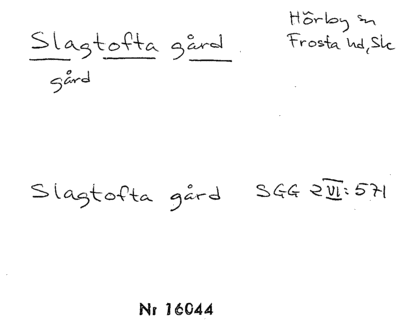 Slagtofta gård
gård
Hörby sn
Frosta hd, Sk
Slagtofta gård SGG 2 VI: 571
Nr 16044